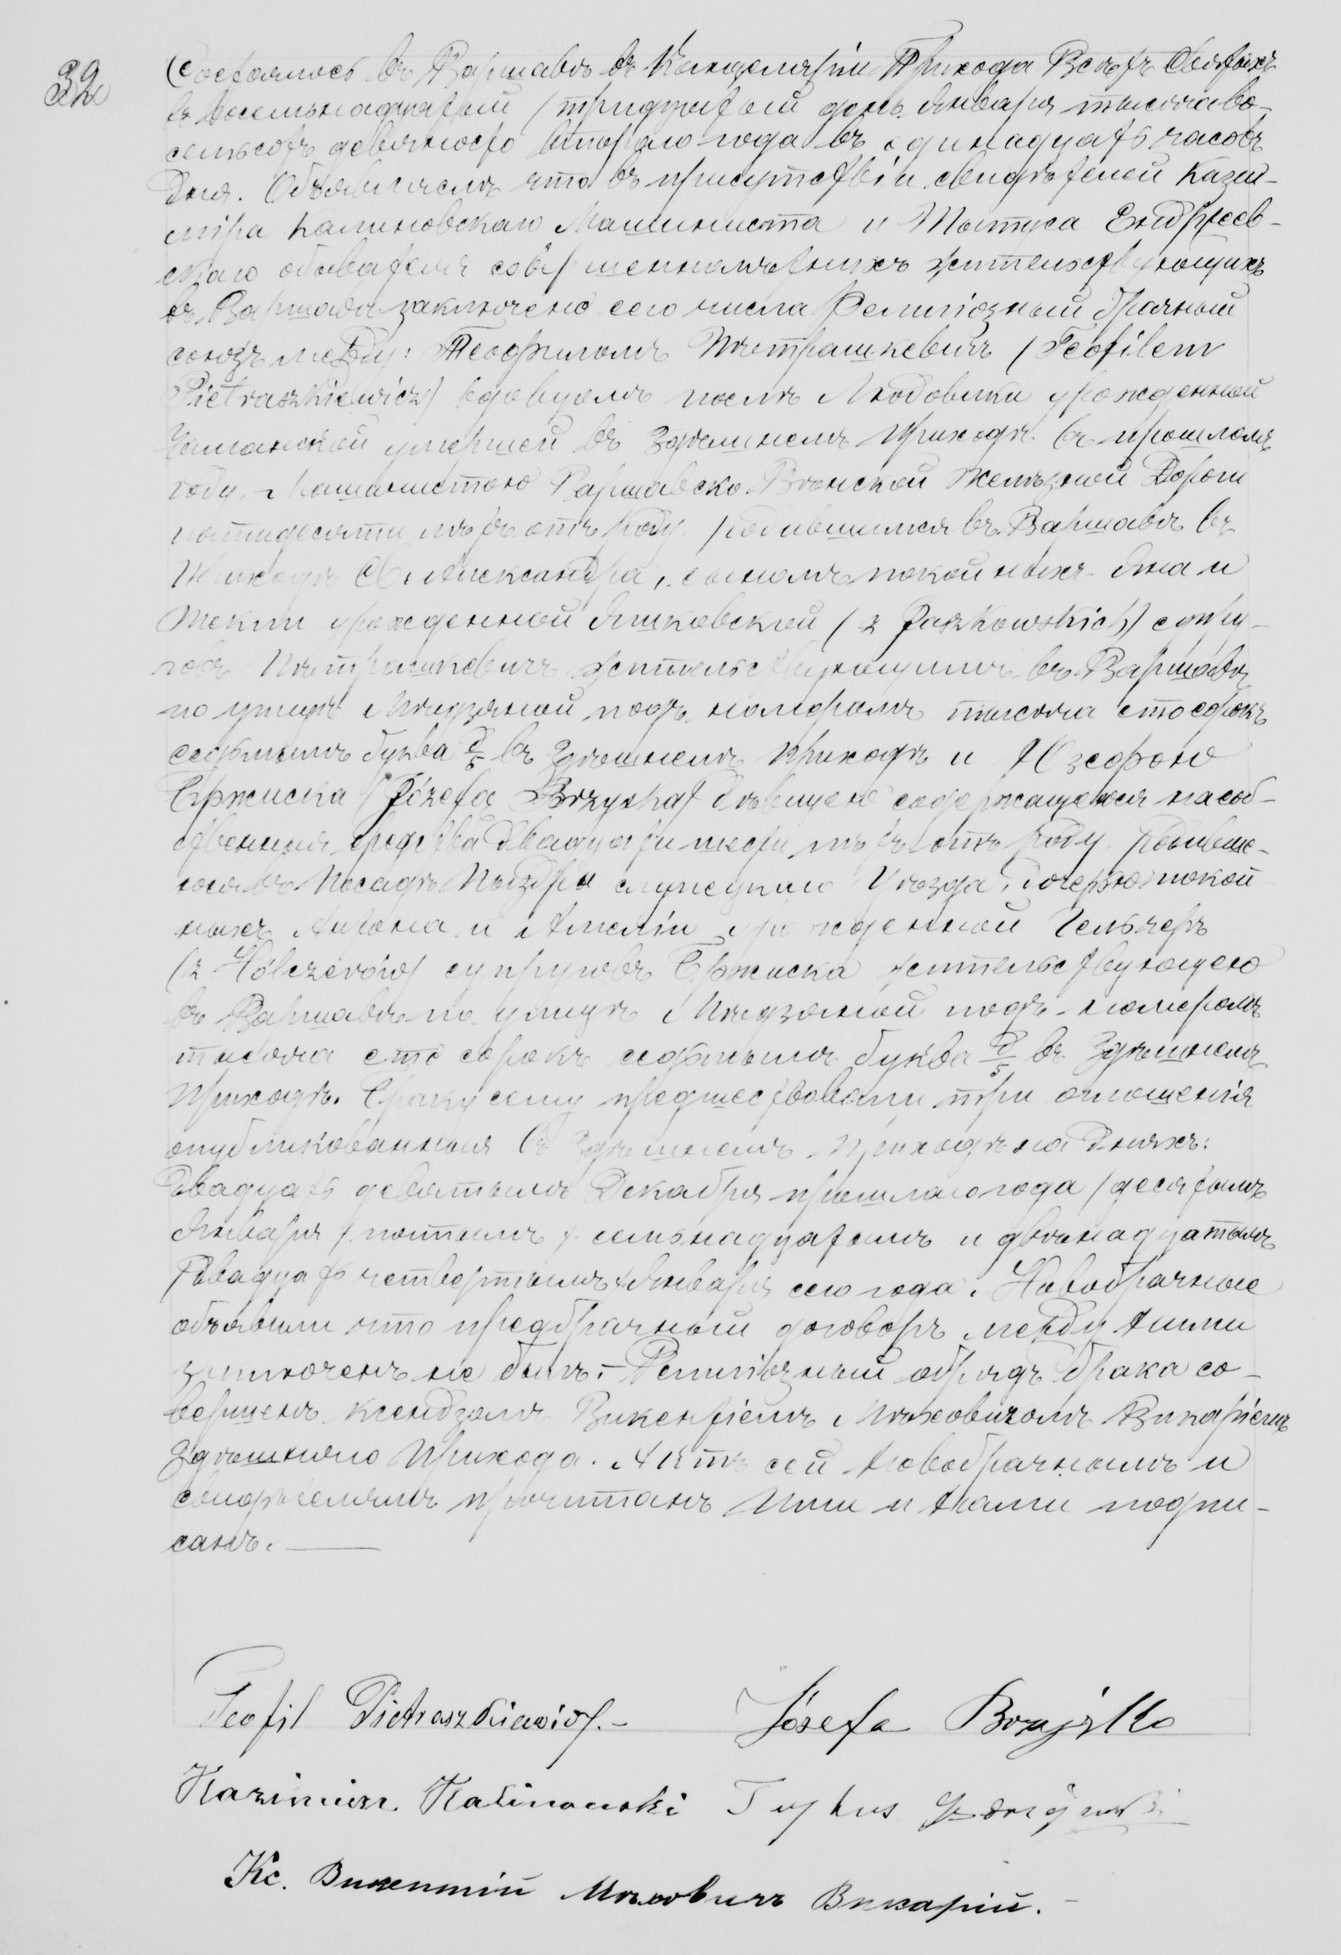 32
Состоялось въ Варшавѣ въ Канцеляріи Прихода Всѣхъ Святыхъ
въ восемьнадцатый /тридцатый день Января тысяча во-
семьсотъ девяносто второго года въ одинадцать часовъ
дня. Объявляемъ что въ присутствіи свидѣтелей Кази-
міра Калиновскаго Машиниста и Тытуса Ендржеев-
скаго обывателя совершеннолѣтнихъ жительствующихъ
въ Варшавѣ заключено сего числа Религіозный брачный
союзъ между: Теофиломъ Пѣтрашкевичъ (Teofilem
Pietraszkiewicz) вдовцемъ послѣ Людовики урожденной
умершей въ здѣшнемъ приходѣ въ прошломъ
году, Машинистою Варшавско Вѣнской Желѣзной Дороги
пятидесяти лѣтъ отъ роду, родившимся въ Варшавѣ въ
Приходѣ Св. Александра, сыномъ покойныхъ Яна и
Текли урожденной Яшковской (z Jaszkowskich) супру-
говъ Пѣтрашкевичъ жительствующимъ въ Варшавѣ
по улицѣ Мѣдзяной подъ номеромъ тысяча сто сорокъ
седьмымъ буква D/5 въ здѣшнемъ Приходѣ и Юзефою
Бржиска (Józefa Brzyska) дѣвицею содержащеюся на соб-
ственныя средства двадцати шести лѣтъ отъ роду, родившею-
ся въ Посадѣ Пыздры слупецкаго Уѣзда, дочерью покой-
ныхъ Антона и Амеліи урожденной Гельчеръ
(z Hölczerów) супруговъ Бржиска жительствующею
въ Варшавѣ по улицѣ Мѣдзяной подъ номеромъ
тысяча сто сорокъ седьмымъ буква D/5 въ здѣшнемъ
Приходѣ. Браку сему предшествовали три оглашенія
опубликованныя въ здѣшнемъ Приходѣ на дняхъ:
Двадцать девятымъ Декабря прошлаго года /десятымъ
Января / пятымъ / семьнадцатымъ и двѣнадцатымъ
/двадцать четвертымъ Января сего года. Новобрачные
объявили что предбрачный договоръ между ними
заключенъ не былъ. – Религіозный обрядъ брака со-
вершенъ Ксендзомъ Викентіемъ Мѣховичомъ Викаріемъ
здѣшняго Прихода. Актъ сей новобрачнымъ и
свидѣтелямъ прочитанъ Ими и нами подпи-
санъ. —
Teofil Pietraszkiewicz. – Józefa Brzyska
Kazimierz Kalinowski Tytus Jędrzejewski
Кс. Викентій Мѣховичъ Викарій. –